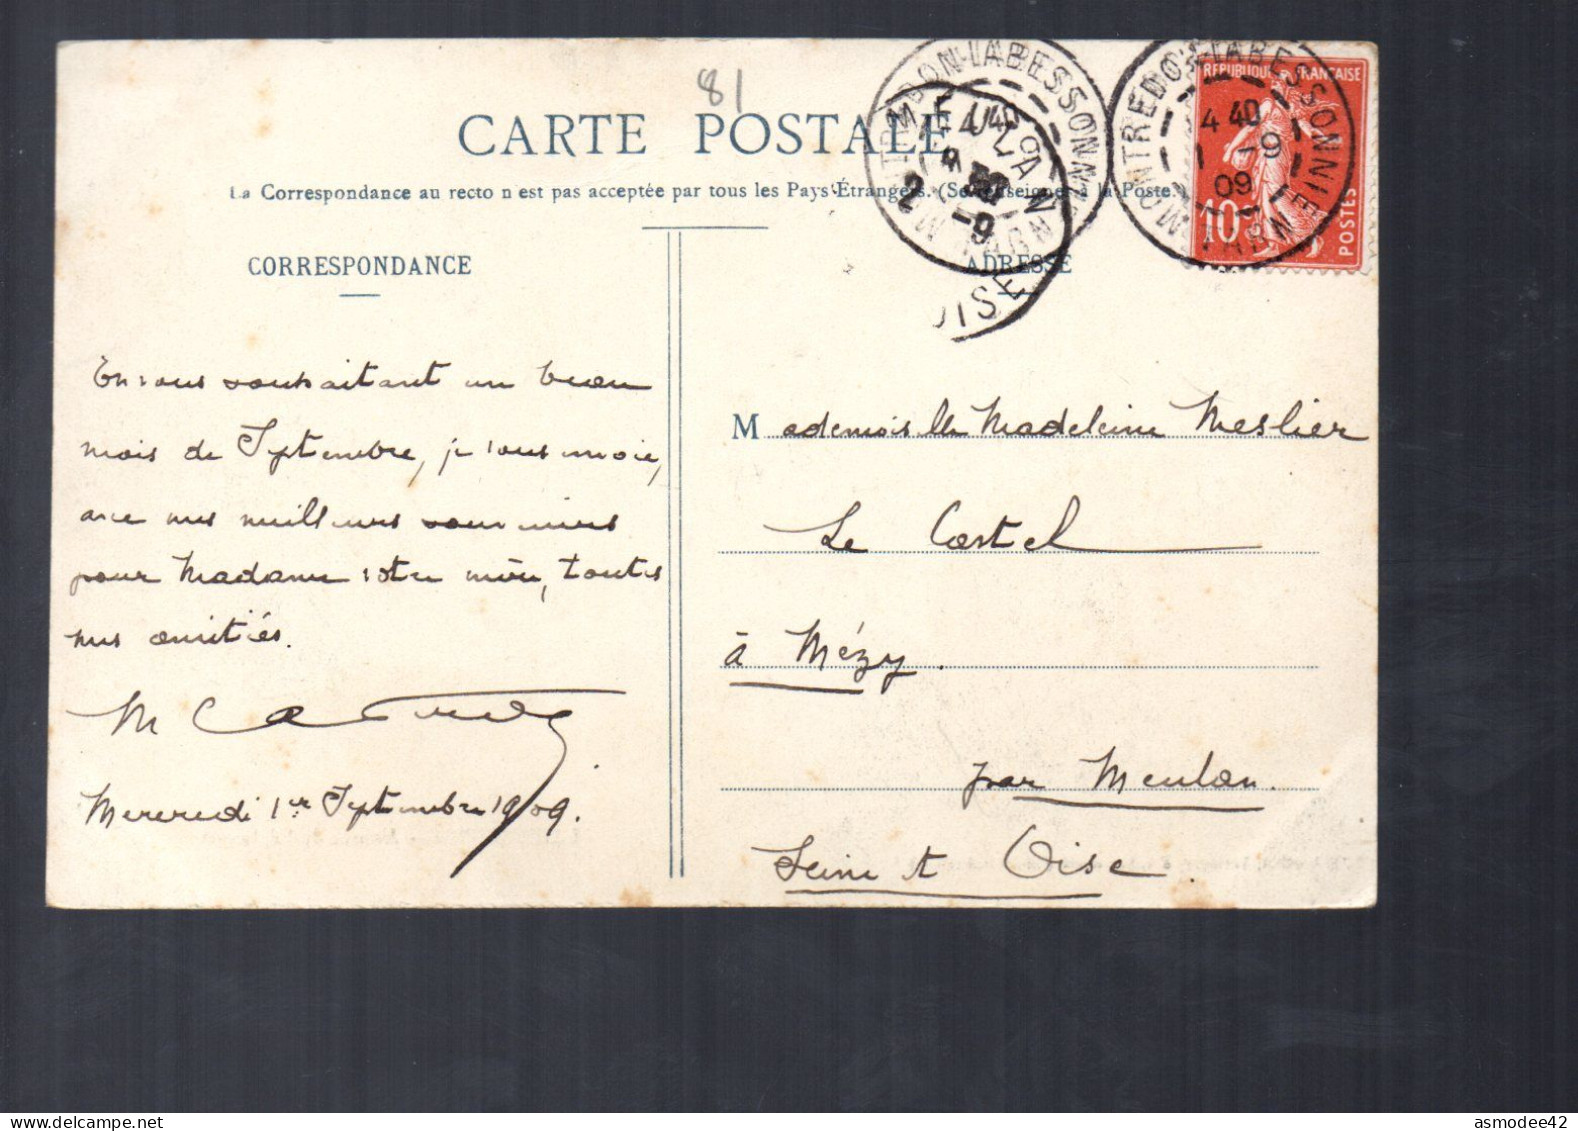 81
CARTE POSTALE
La Correspondance au recto n'est pas acceptée par tous les Pays Étrangers. (Se renseigner à la Poste)
CORRESPONDANCE
ADRESSE
En vous souhaitant un beau
mois de Septembre, je vous envoie,
avec mes meilleurs souvenirs
pour Madame votre mère, toutes
mes amitiés.
Mercredi 1er Septembre 1909.
Mademoiselle Madeleine Meslier
Le Castel
à Mézy.
par Meulan.
Seine et Oise.
REPUBLIQUE FRANÇAISE
10c
POSTES
MONTREDON-LABESSONNIÉ
TARN
4 40
1 -9
09
MEULAN
2 -9
OISE
asmodee42